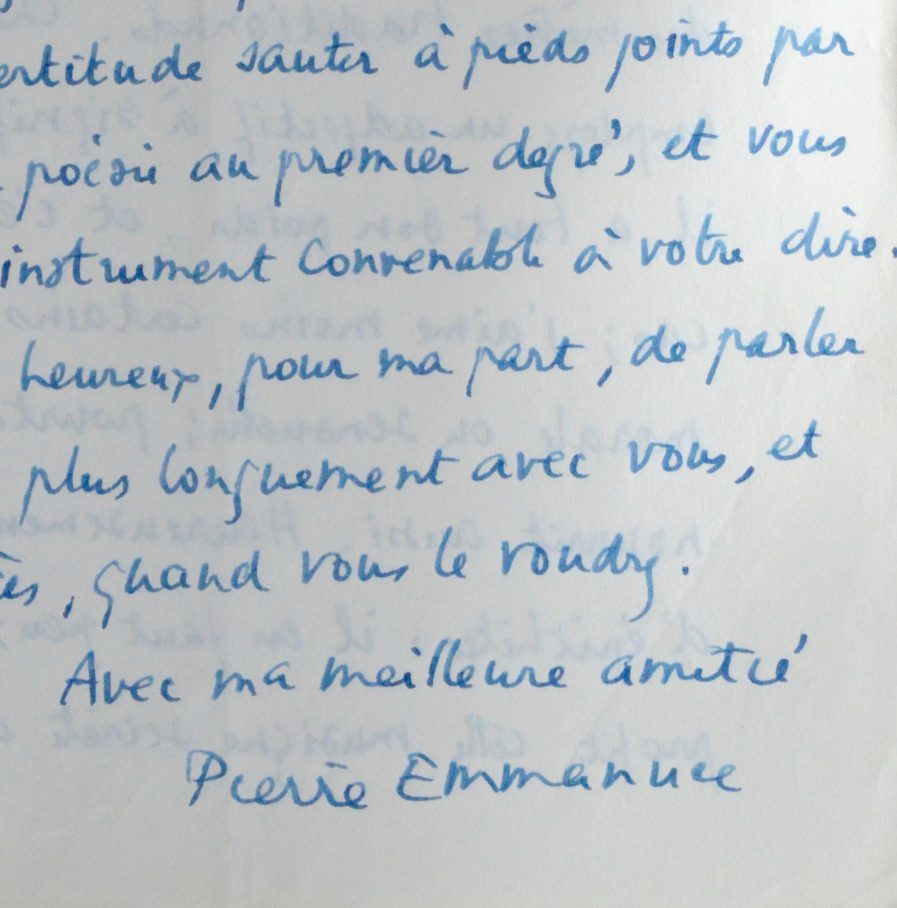 ertitude sauter à pieds joints par
poésie au premier degré, et vous
instrument convenable à votre dire.
heureux, pour ma part, de parler
plus longuement avec vous, et
ès, quand vous le voudrez.
Avec ma meilleure amitié
Pierre Emmanuel